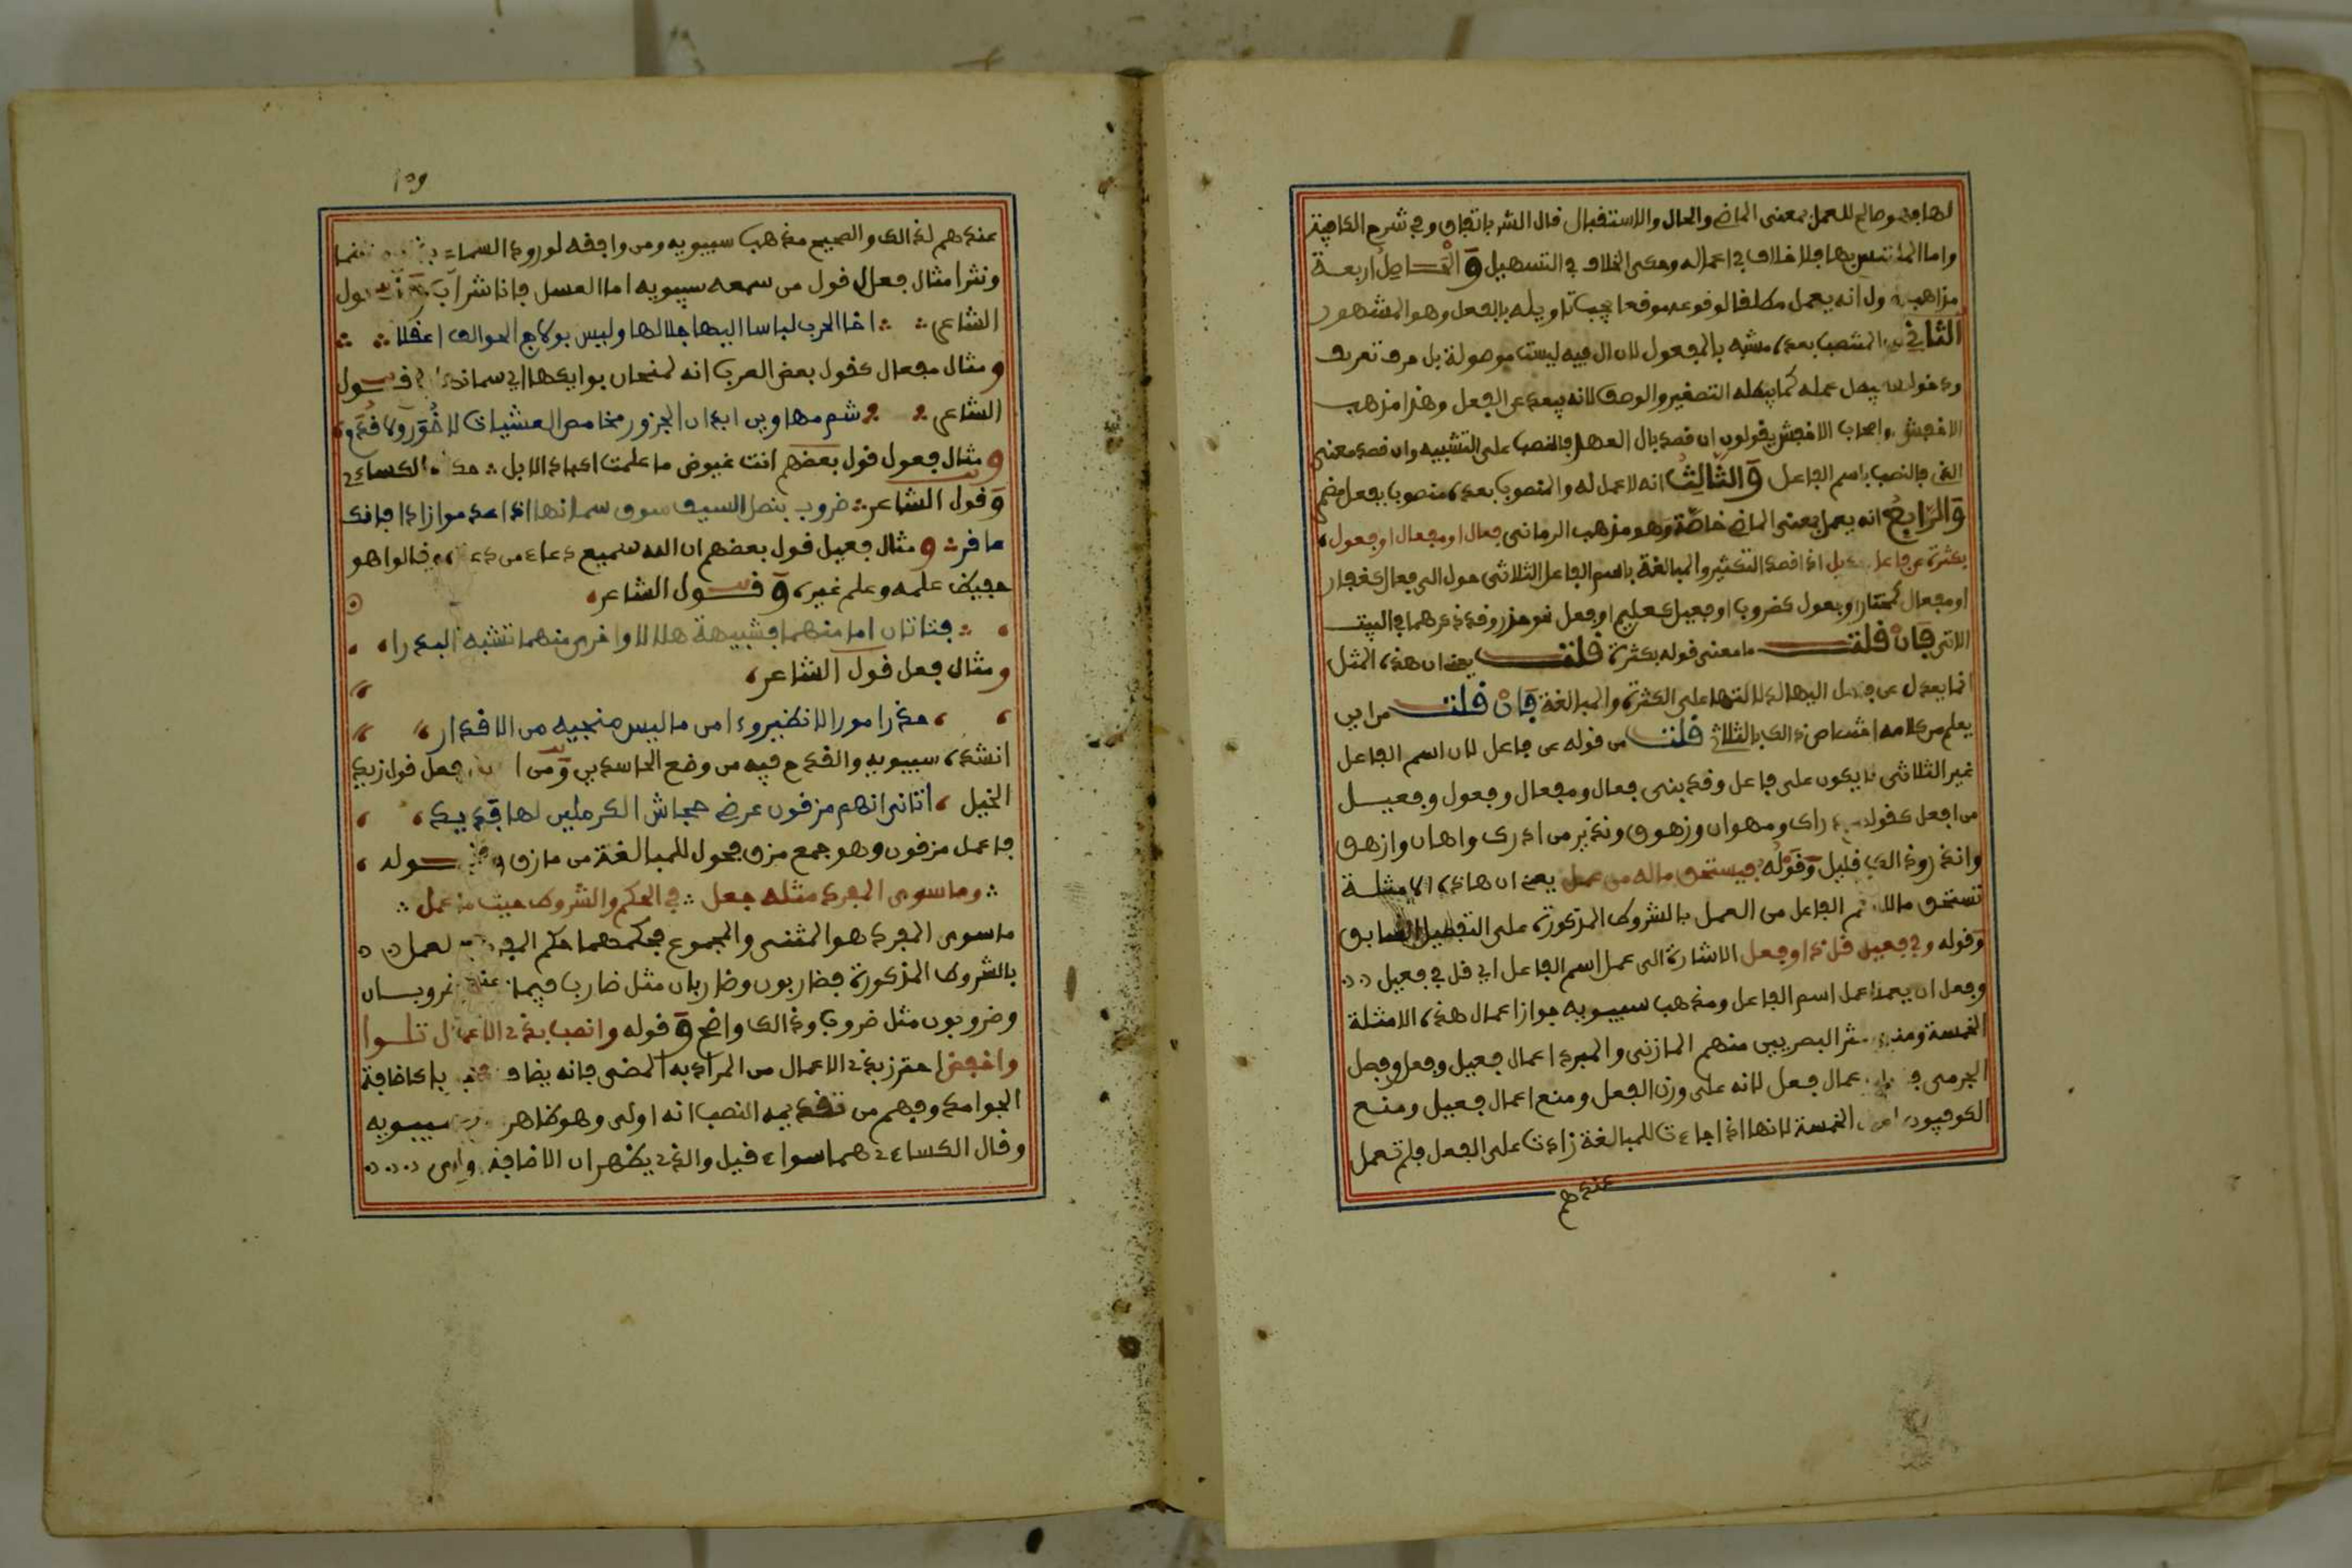 لها فهو صالح للعمل بمعنى الماضي والحال والاستقبال قال الشر باتفاق وفي شرح الكافية
واما الملتبس بها فلا خلاف في اعماله وحكى الخلاف في التسهيل والحاصل اربعة
مذاهب الاول انه يعمل مطلقا لوقوعه موقعا يجب تاويله بالفعل وهو المشهور
الثاني ان المنتصب بعده مشبه بالمفعول لان ال فيه ليست موصولة بل حرف تعريف
ودخوله يبطل عمله كما يبطله التصغير والوصف لانه يبعد عن الفعل وهذا مذهب
الاخفش واصحاب الاخفش يقولون ان قصد بال العهد فالنصب على التشبيه وان قصد معنى
الذي فالنصب باسم الفاعل والثالث انه لا عمل له والمنصوب بعده منصوبا بفعل مضمر
والرابع انه يعمل بمعنى الماضي خاصة وهو مذهب الرماني فعال او مفعال او فعول
بكثرة عن فاعل بديل اذا قصد التكثير والمبالغة باسم الفاعل الثلاثي حول الى فعال كغفار
او مفعال كمنحار او فعول كضروب او فعيل كعليم او فعل نحو حذر وقد ذكرهما في البيت
الاتي فان قلت ما معنى قوله بكثرة قلت يعني ان هذه المثل
انما يعدل عن فاعل اليها لدلالتها على الكثرة والمبالغة فان قلت من اين
يعلم من كلامه اختصاص ذالك بالثلاثي قلت من قوله عن فاعل لان اسم الفاعل
غير الثلاثي لا يكون على فاعل وقد بنى فعال ومفعال وفعول وفعيل
من افعل كقولهم دراك ومهوان وزهوق ونذير من ادرك واهان وازهق
وانذر وذالك قليل وقوله فيستحق ماله من عمل يعني ان هاذه الامثلة
تستحق ما لاسم الفاعل من العمل بالشروط المذكورة على التفصيل السابق
وقوله وفي فعيل قل ذا وفعل الاشارة الى عمل اسم الفاعل اي قل في فعيل
وفعل ان يعملا عمل اسم الفاعل ومذهب سيبويه جواز اعمال هذه الامثلة
الخمسة ومنع اكثر البصريين منهم المازني والمبرد اعمال فعيل وفعل وفصل
الجرمي فاجاز اعمال فعل لانه على وزن الفعل ومنع اعمال فعيل ومنع
الكوفيون اعمال الخمسة لانها اذا جاءت للمبالغة زادت على الفعل فلم تعمل
عندهم
109
عندهم لذالك والصحيح مذهب سيبويه ومن وافقه لورود السماع بذالك نظما
ونثرا مثال فعال قول من سمعه سيبويه اما العسل فانا شراب وقول
الشاعر اخا الحرب لباسا اليها جلالها وليس بولاج الخوالف اعقلا
ومثال مفعال كقول بعض العرب انه لمنحار بوايكها اي سمانها وقول
الشاعر شم مهاوين ابدان الجزور مخاميص العشيات لا خور ولا قزم
ومثال فعول قول بعضهم انت غيوض ما علمت اكباد الابل حكاه الكساءي
وقول الشاعر ضروب بنصل السيف سوق سمانها اذا عدموا زادا فانك
عاقر ومثال فعيل قول بعضهم ان الله سميع دعاء من دعاه وقالوا هو
حفيظ علمه وعلم غيره وقول الشاعر
فتاتان اما منهما فشبيهة هلالا واخرى منهما تشبه البدرا
ومثال فعل قول الشاعر
حذر امورا لا تضير وءامن ما ليس منجيه من الاقدار
انشده سيبويه والقدح فيه من وضع الحاسدين ومن اعمال فعل قول زيد
الخيل اتاني انهم مزقون عرضي جحاش الكرملين لها فديد
فاعمل مزقون وهو جمع مزق محول للمبالغة من مازق وقوله
وما سوى المفرد مثله جعل في الحكم والشروط حيث ما عمل
ما سوى المفرد هو المثنى والمجموع فحكمهما حكم المفرد في العمل
بالشروط المذكورة فضاربون وضاربان مثل ضارب فيما عنه ضروبان
وضروبون مثل ضروب وذالك واضح وقوله وانصب بذي الاعمال تلوا
واخفض احترز بذي الاعمال من المراد به المضي فانه يضاف وجوبا باضافة
الجوامد وفهم من تقديمه النصب انه اولى وهو ظاهر كلام سيبويه
وقال الكساءي هما سواء قيل والذي يظهر ان الاضافة اولى